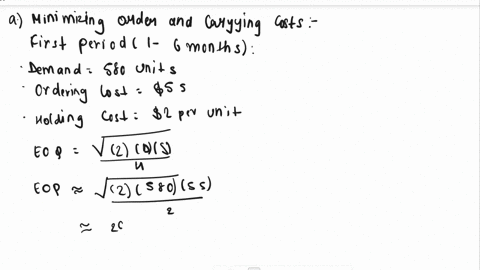 a) Minimizing order and Carrying Costs :-
First period ( 1- 6 months) :
· Demand = 580 units
· Ordering Cost = $55
· Holding Cost = $2 per unit
EOQ = √(2)(D)(S)
H
EOP ≈ √(2)(580)(55)
2
≈ 20